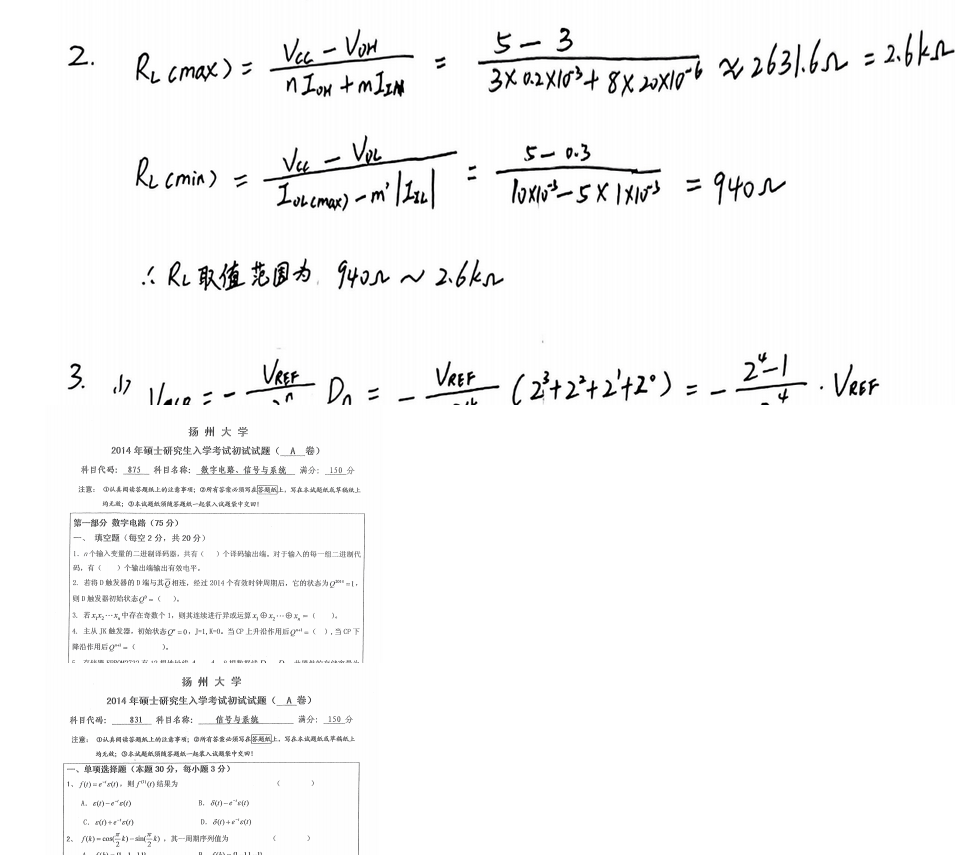 2. RL(max) = (VCC − VOH) / (nIOH + mIIH) = (5 − 3) / (3×0.2×10⁻³ + 8×20×10⁻⁶) ≈ 2631.6Ω = 2.6kΩ
RL(min) = (VCC − VOL) / (IOL(max) − m'|IIL|) = (5 − 0.3) / (10×10⁻³ − 5×1×10⁻³) = 940Ω
∴ RL取值范围为 940Ω ~ 2.6kΩ
3. (1) = − VREF / Dn = − VREF / (2³+2²+2¹+2⁰) = − (2⁴−1) / · VREF
扬 州 大 学
2014 年硕士研究生入学考试初试试题（ A 卷）
科目代码： 875 科目名称： 数字电路、信号与系统 满分： 150 分
注意： ①认真阅读答题纸上的注意事项；②所有答案必须写在答题纸上，写在本试题纸或草稿纸上
均无效；③本试题纸须随答题纸一起装入试题袋中交回！
第一部分 数字电路（75 分）
一、 填空题（每空 2 分，共 20 分）
1. n 个输入变量的二进制译码器，共有（ ）个译码输出端。对于输入的每一组二进制代
码，有（ ）个输出端输出有效电平。
2. 若将 D 触发器的 D 端与其Q̅相连，经过 2014 个有效时钟周期后，它的状态为Q²⁰¹⁴=1，
则 D 触发器初始状态Q⁰=（ ）。
3. 若x₁x₂⋯xₙ中存在奇数个 1，则其连续进行异或运算x₁⊕x₂⋯⊕xₙ=（ ）。
4. 主从 JK 触发器，初始状态Qⁿ=0，J=1,K=0。当 CP 上升沿作用后Qⁿ⁺¹=（ ），当 CP 下
降沿作用后Qⁿ⁺¹=（ ）。
扬 州 大 学
2014 年硕士研究生入学考试初试试题（ A 卷）
科目代码： 831 科目名称： 信号与系统 满分： 150 分
注意： ①认真阅读答题纸上的注意事项；②所有答案必须写在答题纸上，写在本试题纸或草稿纸上
均无效；③本试题纸须随答题纸一起装入试题袋中交回！
一、单项选择题（本题 30 分，每小题 3 分）
1、 f(t)=e⁻ᵗε(t)，则f⁽¹⁾(t)结果为 （ ）
A. ε(t)−e⁻ᵗε(t) B. δ(t)−e⁻ᵗε(t)
C. ε(t)+e⁻ᵗε(t) D. δ(t)+e⁻ᵗε(t)
2、 f(k)=cos(π/2 k)−sin(π/2 k)，其一周期序列值为 （ ）